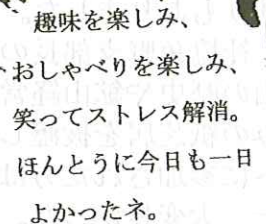 趣味を楽しみ、
おしゃべりを楽しみ、
笑ってストレス解消。
ほんとうに今日も一日
よかったネ。